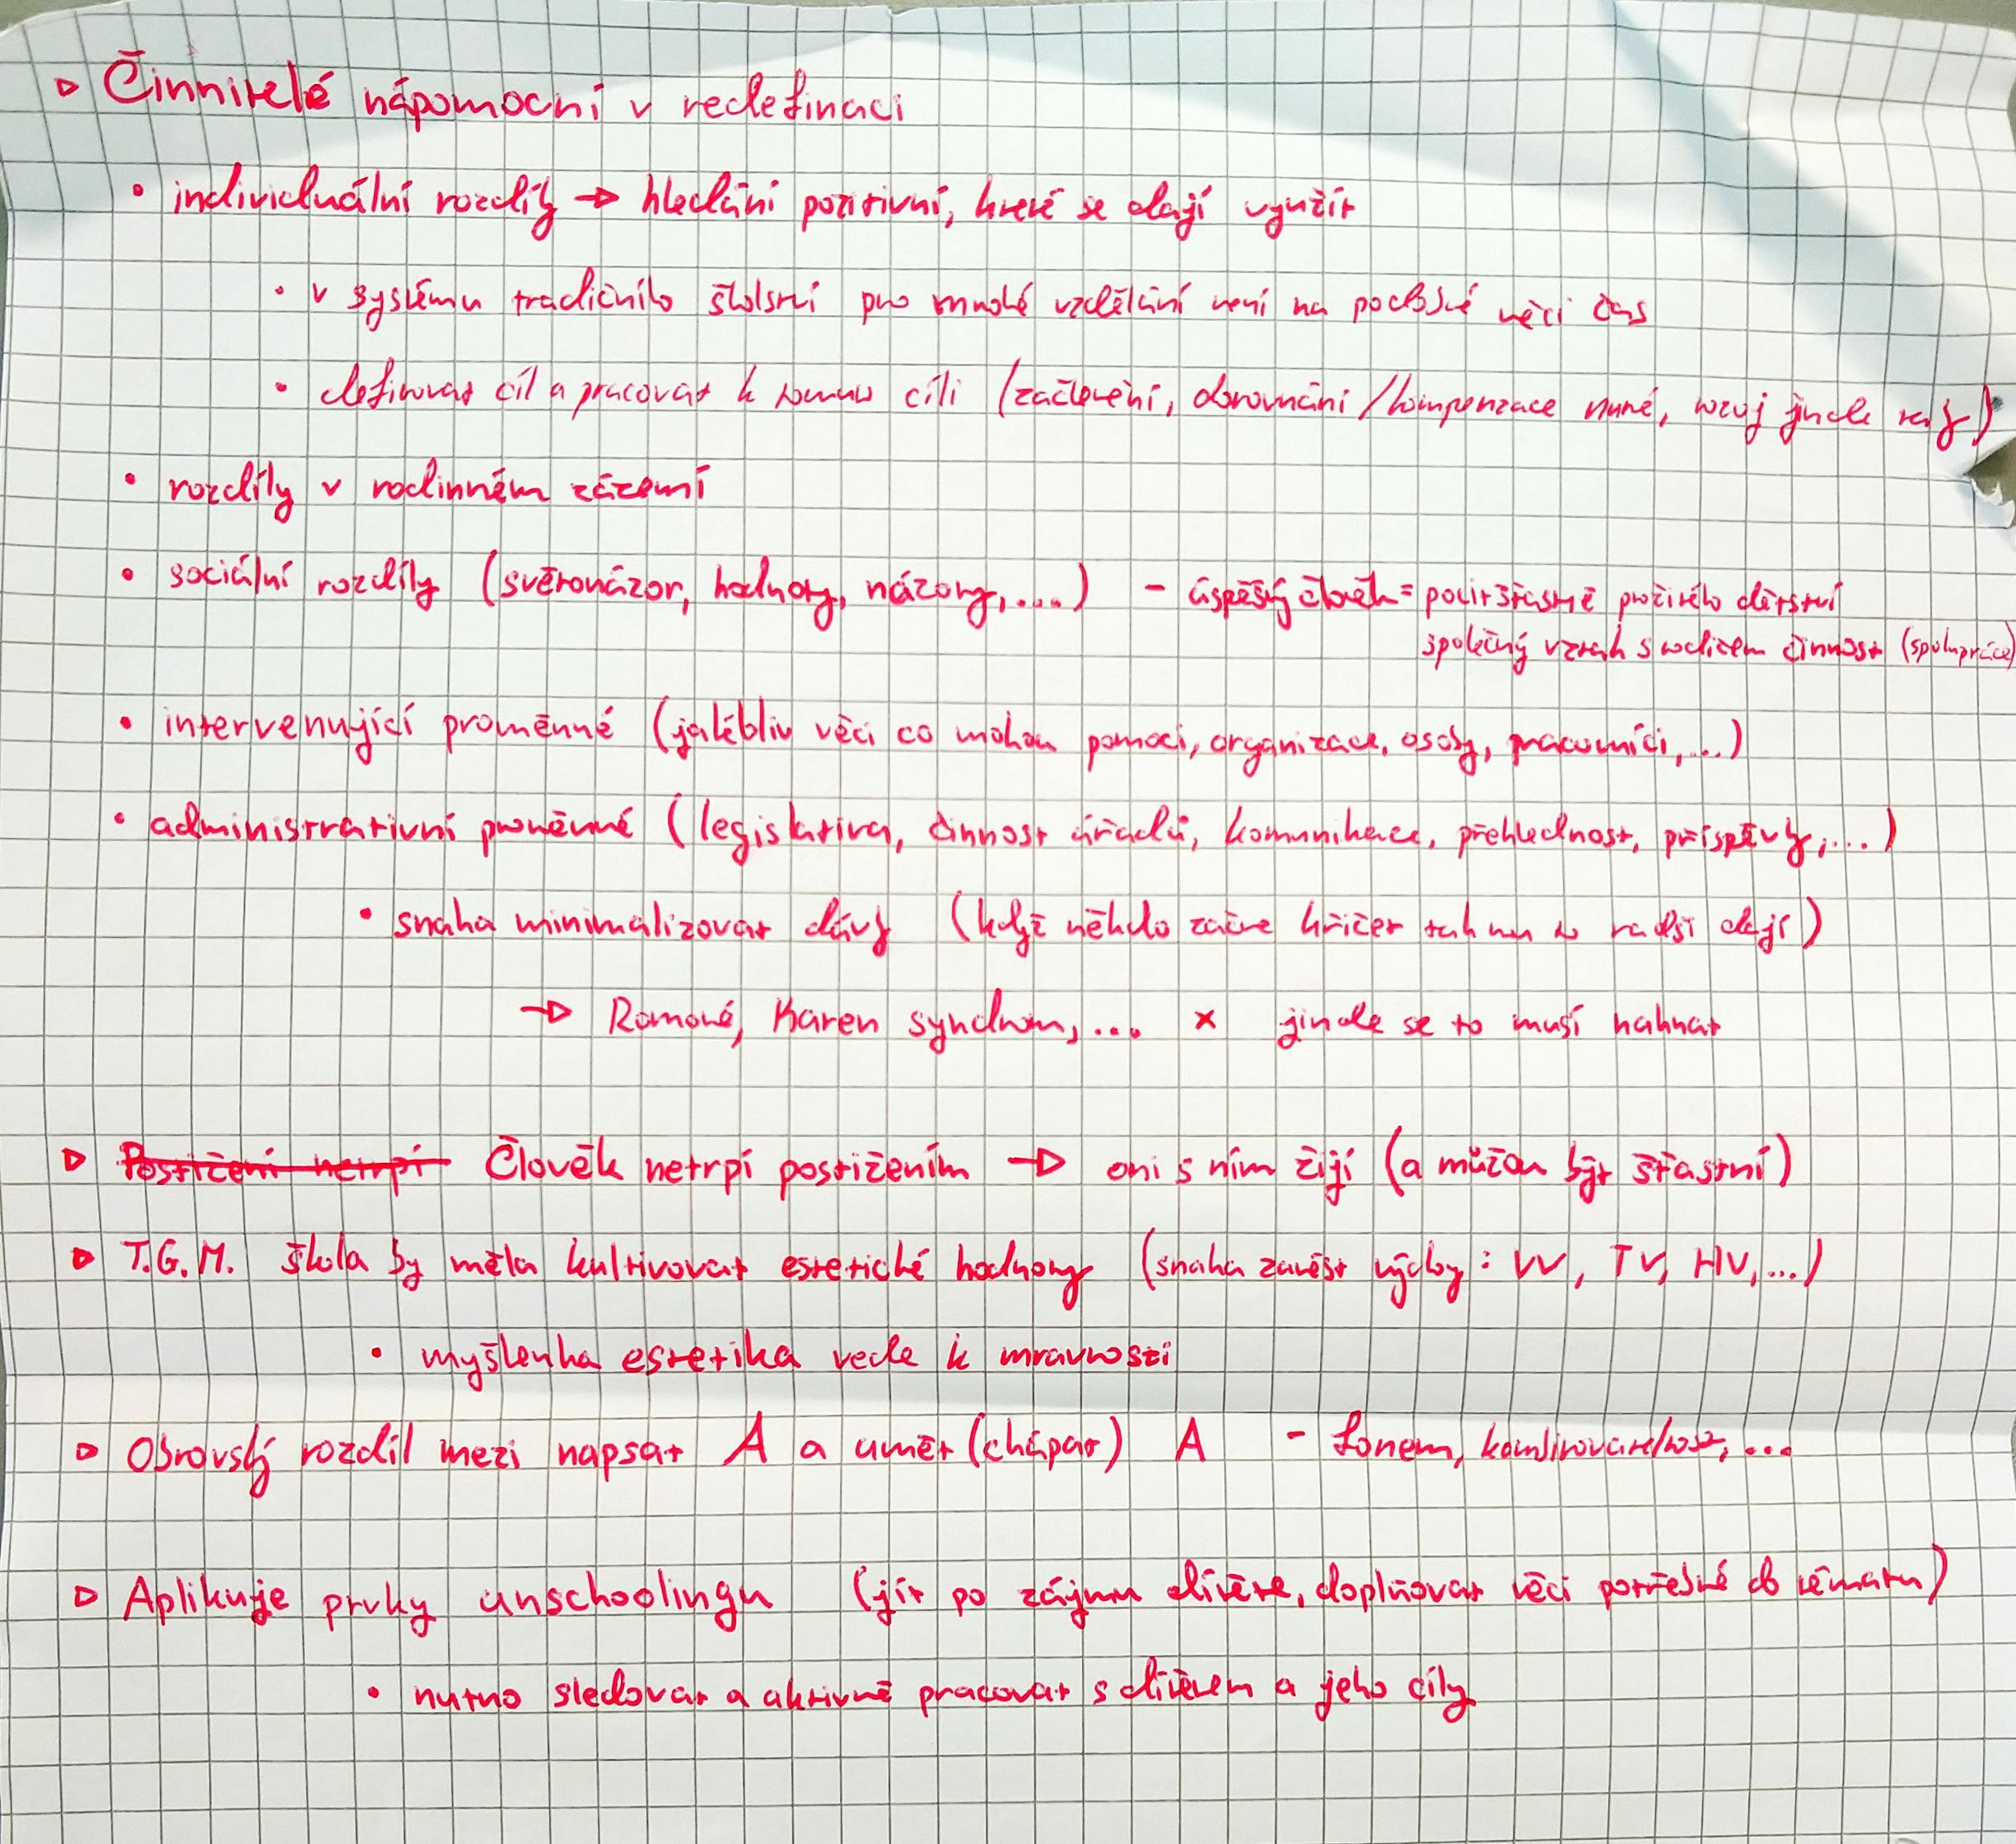 ▷ Činnitelé nápomocní v redefinaci
• individuální rozdíly → hledání pozitivní, které se dají využít
• v systému tradičního školství pro mnohé vzdělání není na podobné věci čas
• definovat cíl a pracovat k tomuto cíli (začlenění, dorovnání/kompenzace nutné, rozvoj jinde)
• rozdíly v rodinném zázemí
• sociální rozdíly (světonázor, hodnoty, názory,....) - úspěšný člověk = pocit šťastně prožitého dětství
společný vztah s rodičem činnost (spolupráce)
• intervenující proměnné (jakékoliv věci co mohou pomoci, organizace, osoby, pracovníci,...)
• administrativní proměnné (legislativa, činnost úřadů, komunikace, přehlednost, příspěvky,...)
• snaha minimalizovat dávky (když někdo začne křičet tak mu to radši dají)
→ Romové, Karen syndrom,... × jinde se to musí nahnat
▷ Postižení netrpí Člověk netrpí postižením → oni s ním žijí (a můžou být šťastní)
▷ T.G.M. škola by měla kultivovat estetické hodnoty (snaha zavést výchovy: VV, TV, HV,...)
• myšlenka estetika vede k mravnosti
▷ Obrovský rozdíl mezi napsat A a umět (chápat) A - fonem, kombinovatelnost,...
▷ Aplikuje prvky unschoolingu (jít po zájmu dítěte, doplňovat věci potřebné do tématu)
• nutno sledovat a aktivně pracovat s dítětem a jeho cíly